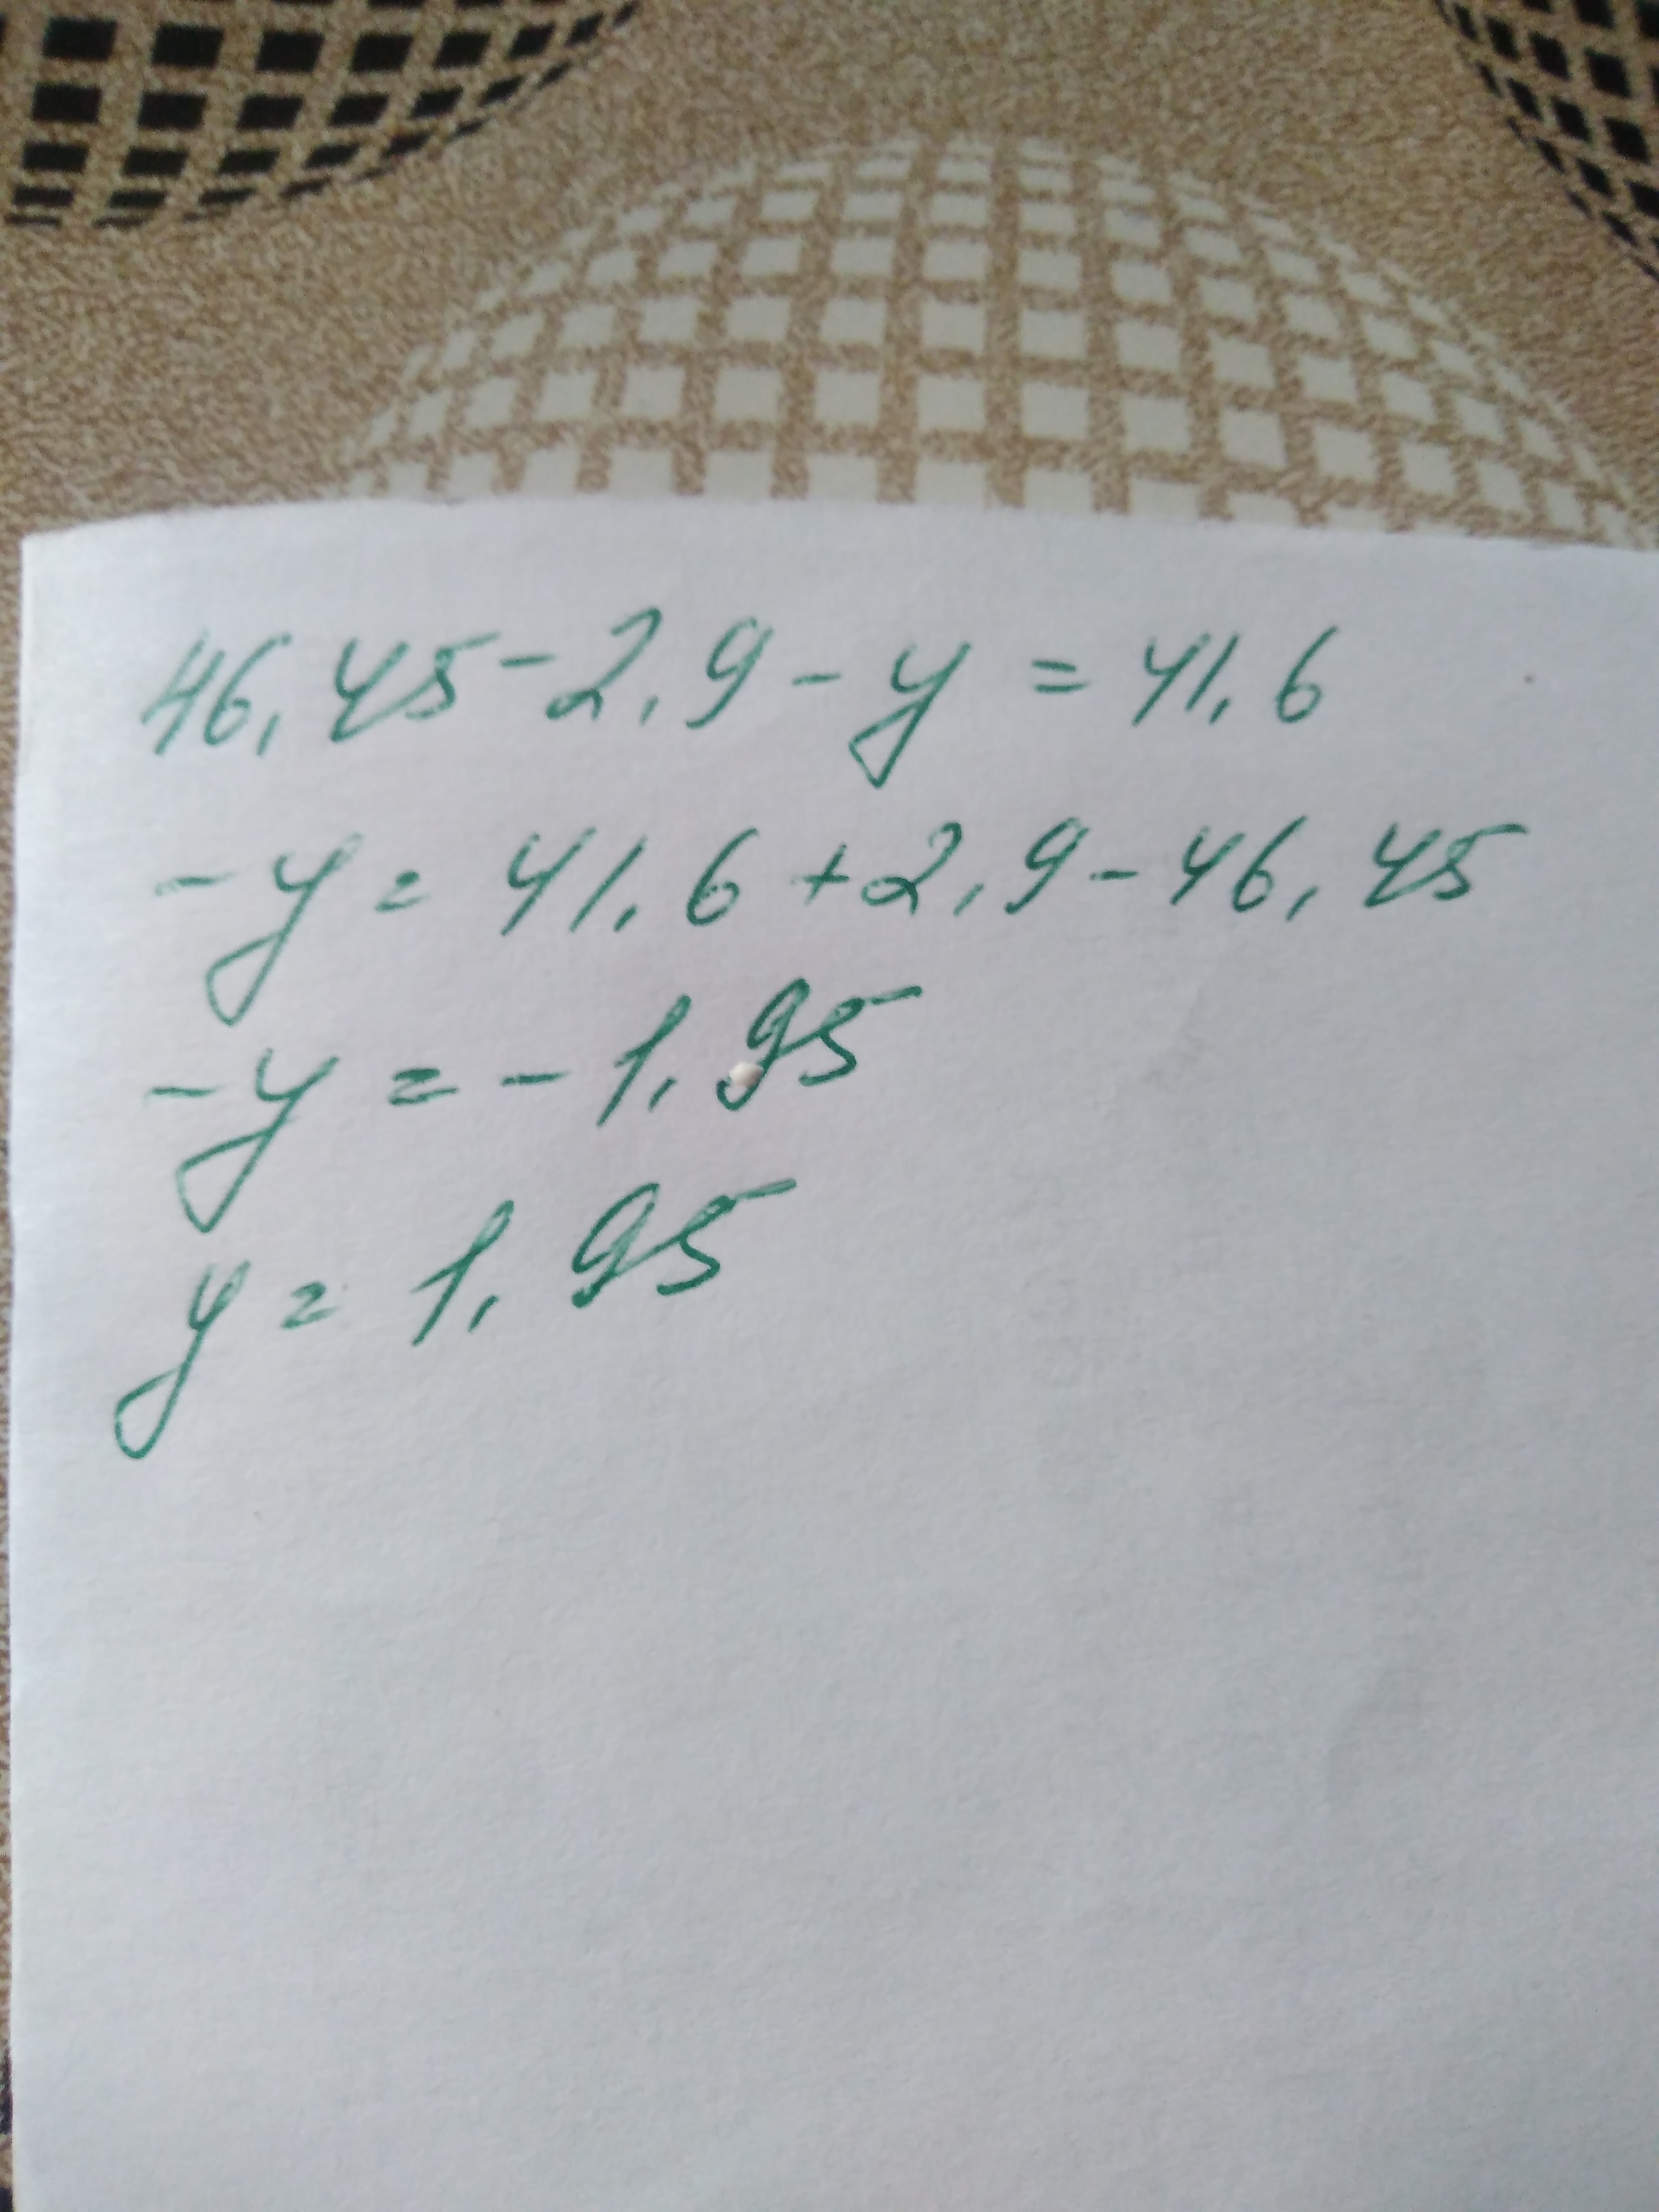 46,45-2,9-y=41,6
-y=41,6+2,9-46,45
-y=-1,95
y=1,95